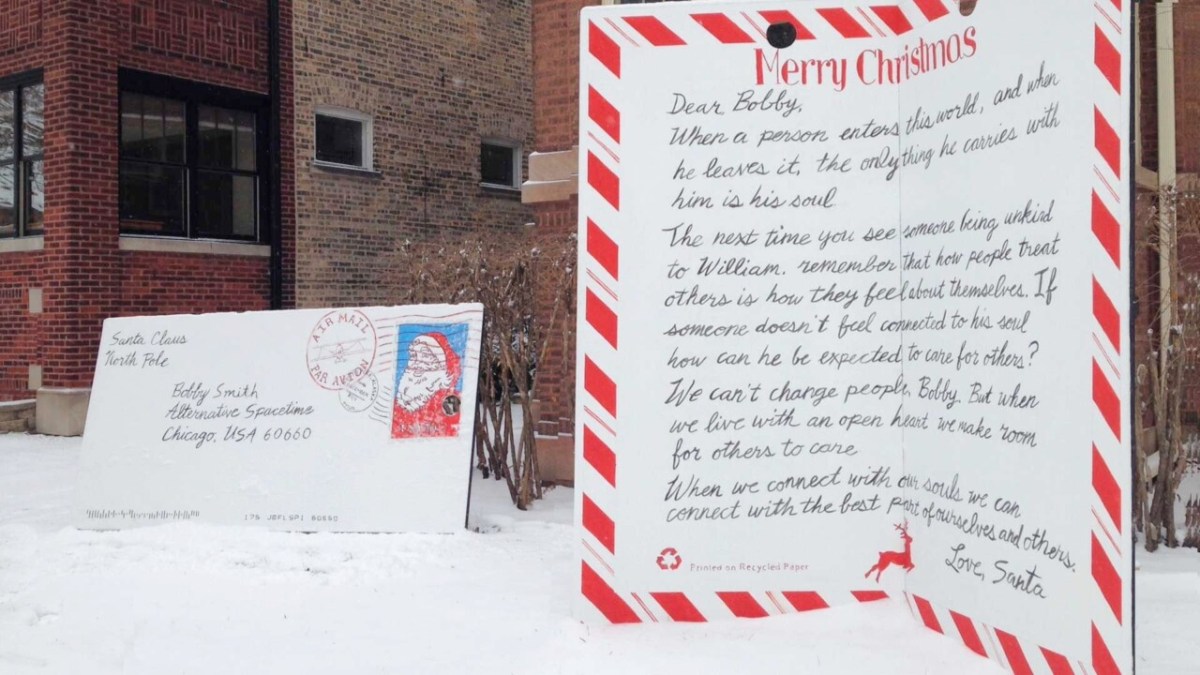 Santa Claus
North Pole
AIR MAIL
PAR AVION
Bobby Smith
Alternative Spacetime
Chicago, USA 60660
Merry Christmas
Dear Bobby,
When a person enters this world, and when
he leaves it, the only thing he carries with
him is his soul
The next time you see someone being unkind
to William. remember that how people treat
others is how they feel about themselves. If
someone doesn't feel connected to his soul
how can he be expected to care for others?
We can't change people, Bobby. But when
we live with an open heart we make room
for others to care
When we connect with our souls we can
connect with the best part of ourselves and others.
Love, Santa
Printed on Recycled Paper